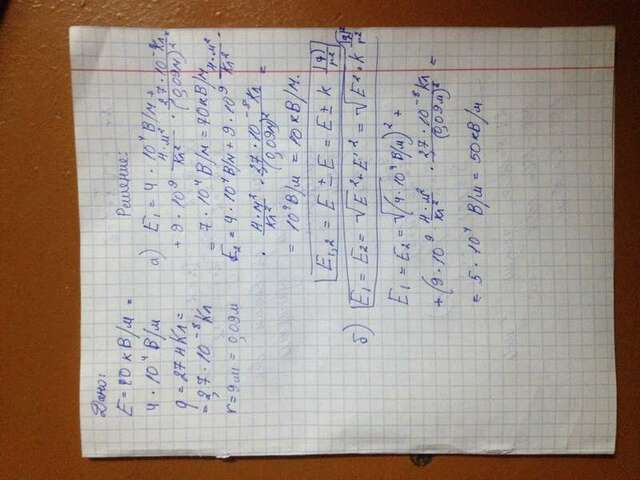 Дано:
E = 20 кВ/м =
4 · 10⁴ В/м
q = 27 нКл =
= 2,7 · 10⁻⁸ Кл
r = 9см = 0,09м
Решение:
а) E₁ = 4 · 10⁴ В/м +
+ 9 · 10⁹ Н·м²/Кл² · 2,7·10⁻⁸Кл/(0,09м)² =
= 7 · 10⁴ В/м = 70кВ/м
E₂ = 4 · 10⁴В/м + 9 · 10⁹ Н·м²
· Н·м²/Кл² · 2,7·10⁻⁸Кл/(0,09м)² =
= 10⁴В/м = 10кВ/м.
E₁,₂ = E ± E = E ± k |q|/r²
б) E₁ = E₂ = √E² + E'² = √E² · k |q|²/r²
E₁ = E₂ = √(4 · 10⁴ В/м)² +
+ (9 · 10⁹ Н·м²/Кл² · 2,7·10⁻⁸Кл/(0,09м)² =
= 5 · 10⁴ В/м = 50кВ/м